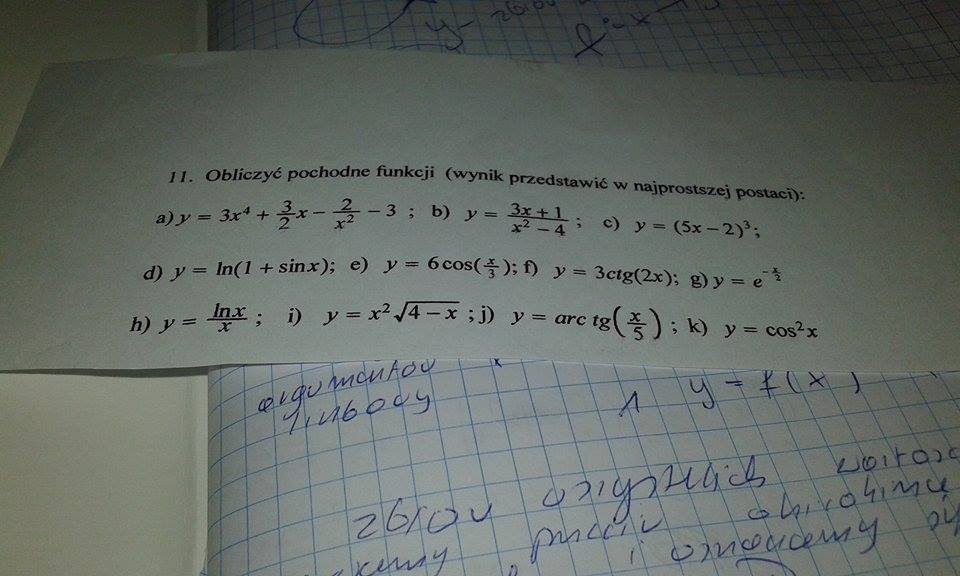 y
11. Obliczyć pochodne funkcji (wynik przedstawić w najprostszej postaci):
a) y = 3x⁴ + 3/2 x − 2/x² − 3 ; b) y = (3x + 1)/(x² − 4) ; c) y = (5x − 2)³;
d) y = ln(1 + sinx); e) y = 6 cos(x/3); f) y = 3ctg(2x); g) y = e^(−x/2)
h) y = lnx/x ; i) y = x² √(4 − x) ; j) y = arc tg(x/5) ; k) y = cos²x
argumentów
y = f(x)
liczbowy
zbiór wszystkich
i oznaczamy